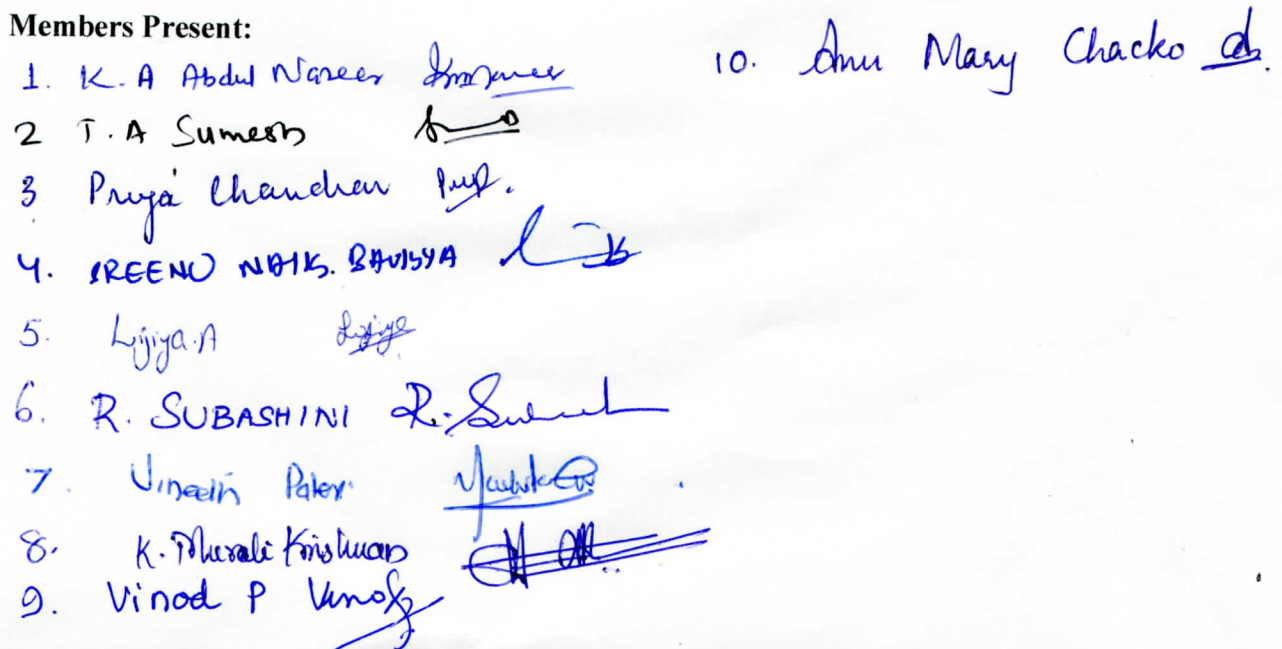 Members Present:
1. K. A Abdul Nazeer
2 T. A Sumesh
3 Priya Chandran
4. SREENU NAIK. BHUKYA
5. Lijiya. A Lijiya
6. R. SUBASHINI R.
7. Vineeth Paleri
8. K. Murali Krishnan
9. Vinod P Vinod
10. Anu Mary Chacko